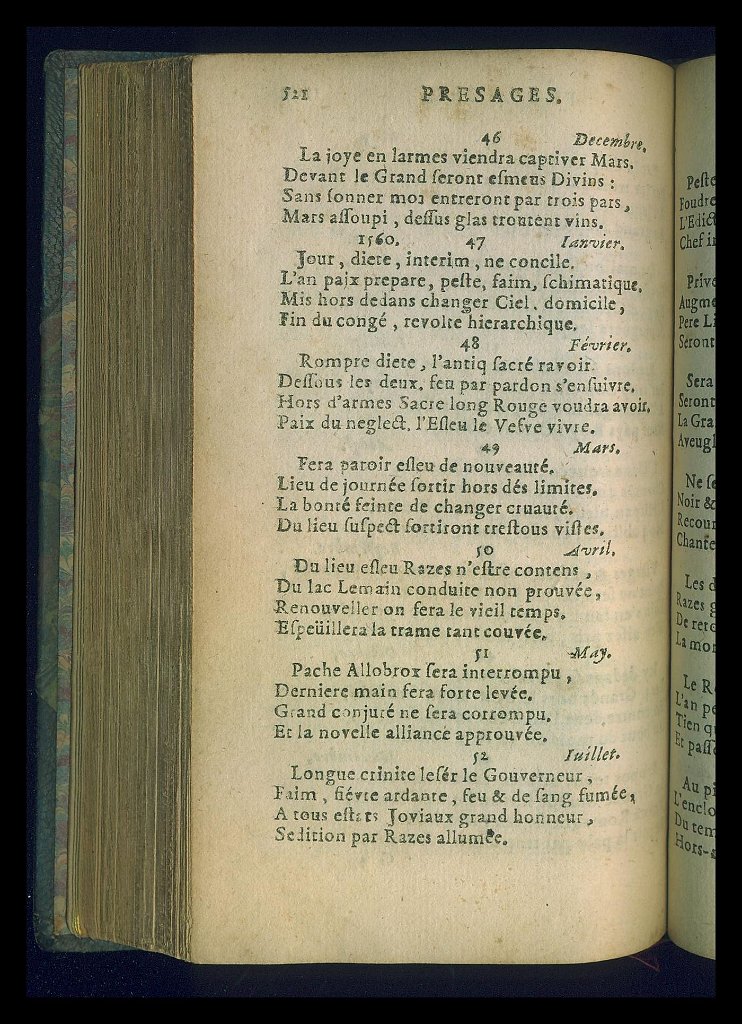 521 PRESAGES.
46 Decembre.
La joye en larmes viendra captiver Mars.
Devant le Grand ſeront eſmeus Divins :
Sans ſonner moı entreront par trois pars,
Mars aſſoupi, deſſus glas troutent vins.
1560. 47 Ianvier.
Jour, diete, interim, ne concile.
L'an paix prepare, peſte, faim, ſchimatique.
Mis hors dedans changer Ciel, domicile,
Fin du congé, revolte hierarchique.
48 Février.
Rompre diete, l'antiq ſacré ravoir.
Deſſous les deux, feu par pardon s'enſuivre.
Hors d'armes Sacre long Rouge voudra avoir.
Paix du neglect, l'Eſleu le Veſve vivre.
49 Mars.
Fera paroir eſleu de nouveauté.
Lieu de journée ſortir hors dés limites.
La bonté feinte de changer cruauté.
Du lieu ſuſpect ſortiront treſtous viſtes.
50 Avril.
Du lieu eſleu Razes n'eſtre contens,
Du lac Lemain conduite non prouvée,
Renouveller on fera le vieil temps.
Eſpeüillera la trame tant couvée.
51 May.
Pache Allobrox ſera interrompu,
Derniere main fera forte levée.
Grand conjuré ne ſera corrompu.
Et la novelle alliance approuvée.
52 Iuillet.
Longue crinite leſér le Gouverneur,
Faim, fiévre ardante, feu & de ſang fumée,
A tous eſtats Joviaux grand honneur,
Sedition par Razes allumée.
Peſte
Foudre
L'Edict
Chef
Augme
Pere
Seront
Sera
Seront
La
Aveugl
Ne
Noir &
Recour
Chanſe
Les
Razes
De
La
Le
L'an
Tien
Et
Au
L'enclo
Du